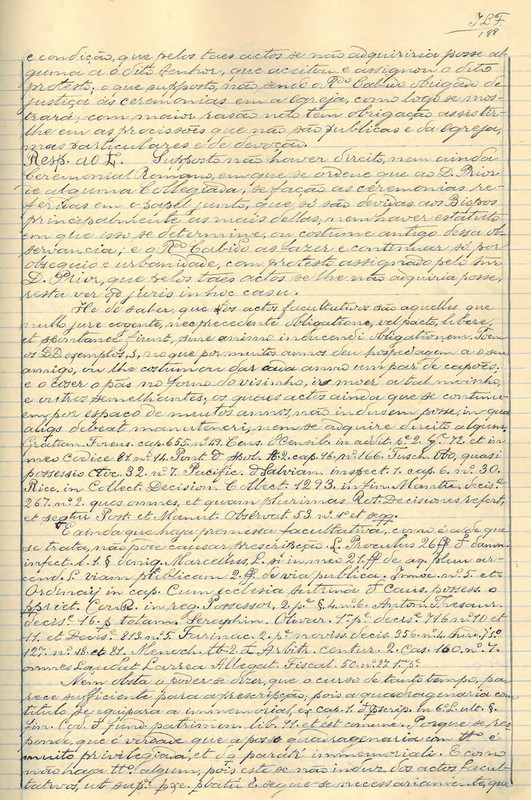 JLF
188
e condição, que pelos taes actos se não adquiriria posse al
guma a o dito senhor, que aceitou e assignou o dito
protesto; o que supposto, não sendo o Rdo Cabido obrigado de
justiça ás ceremonias em a Igreja, como logo se mos
trará; com maior rasão não tem obrigação assistir-
lhe em as procissões que não são publicas e da Igreja,
mas particulares e de devoção.
Resp. ao E. Supposto não haver direito, nem ainda
Ceremonial Romano, em que se ordene que ao D. Prior
de alguma Collegiada, se fação as ceremonias re-
feridas em o papel junto, que só são devidas aos Bispos
principalmente as mais dellas, nem haver estatuto
em que isso se determine, ou costume antigo dessa ob
servencia; e o Rdo Cabido as fazer e continuar só por
obsequio e urbanidade, com protesto assignado pelo snr
D. Prior, que pelos taes actos se lhe não adquiria posse,
resta ver quid juris in hoc casu.
He de saber, que os actos facultativos são aquelles que
nullo jure cogente, nec precedente obligatione, vel pacto, libere,
et spontanee fiunt, sine animo inducendi obligationem. Poem
os DD. exemplos, no que por muitos annos deu hospedagem a o seu
amigo, ou lhe costumou dar cada anno um par de capões,
e o coser o pão no forno do visinho, ir moer a tal moinho,
e outros semelhantes, os quaes actos ainda que se continu-
em por espaço de muitos annos, não indusem posse, in qua
aliqs debeat manuteneri, nem se adquire direito algum.
Gratian. Forens. cap. 655 nº 49. Cens. et Consili in addit.
meo Codice 81 nº 14. Post. cap. 46. nº 166. Fusc.
possessio 32. nº 7. Pacific. Salviam inspect. 1. cap. 6. nº 30.
Ricc. in Collect. Decision. Collect. 1293. in fin. Mantic. decis.
267. nº 2. quos omnes, et quam plurimas Rot. Decisiones refert,
et sequitur Post. et Manut. Observat 53. nº 1 et seqq.
E ainda que haja promessa facultativa, como é a de que
se trata, não pode causar prescripção. L. Proculus 26 ff. damn.
infect. l. 1. § denig. Marcellus, L. si in meo 21. ff. de aq. pluv. ar-
cend. L. viam publicam 2. ff. de via publica. nº 5. et
Ordinarij in cap. Cum Ecclesia sutrina Caus. possess. o
in reg. Possessor, 2. pª § 4. nº 6. Anton. Thesaur.
decis. 16. p. totam. Seraphin. Olivar. 1ª pª decis. 716 nº 10 et
11. et Decis. 813 nº 5. Farinac. 2. pª noviss. decis. 356 nº 4.
127. nº 18. et 21. Menoch. Arbitr. centur. 2. Cas. 160. nº 7.
omnes Larrea Allegat. Fiscal. 52. nº 27. 1ª pª.
Nem obsta o poder-se dizer, que o curso de tanto tempo, pa
rece sufficiente para a prescripção, pois a quadragenaria cum
titulo se equipara a immemorial, ex cap. 1. Præscrip. in 6º. L. ult. §
fin. Cod. fund. patrimon. lib. 11. et est comune. Porque se res
ponde, que é verdade que a posse quadragenaria com ttº é
muito privilegiada, et parat immemoriali. E como
não haja ttº algum, pois este se não induz dos actos facul-
tativos, ut supª. e segue-se necessariamente, que